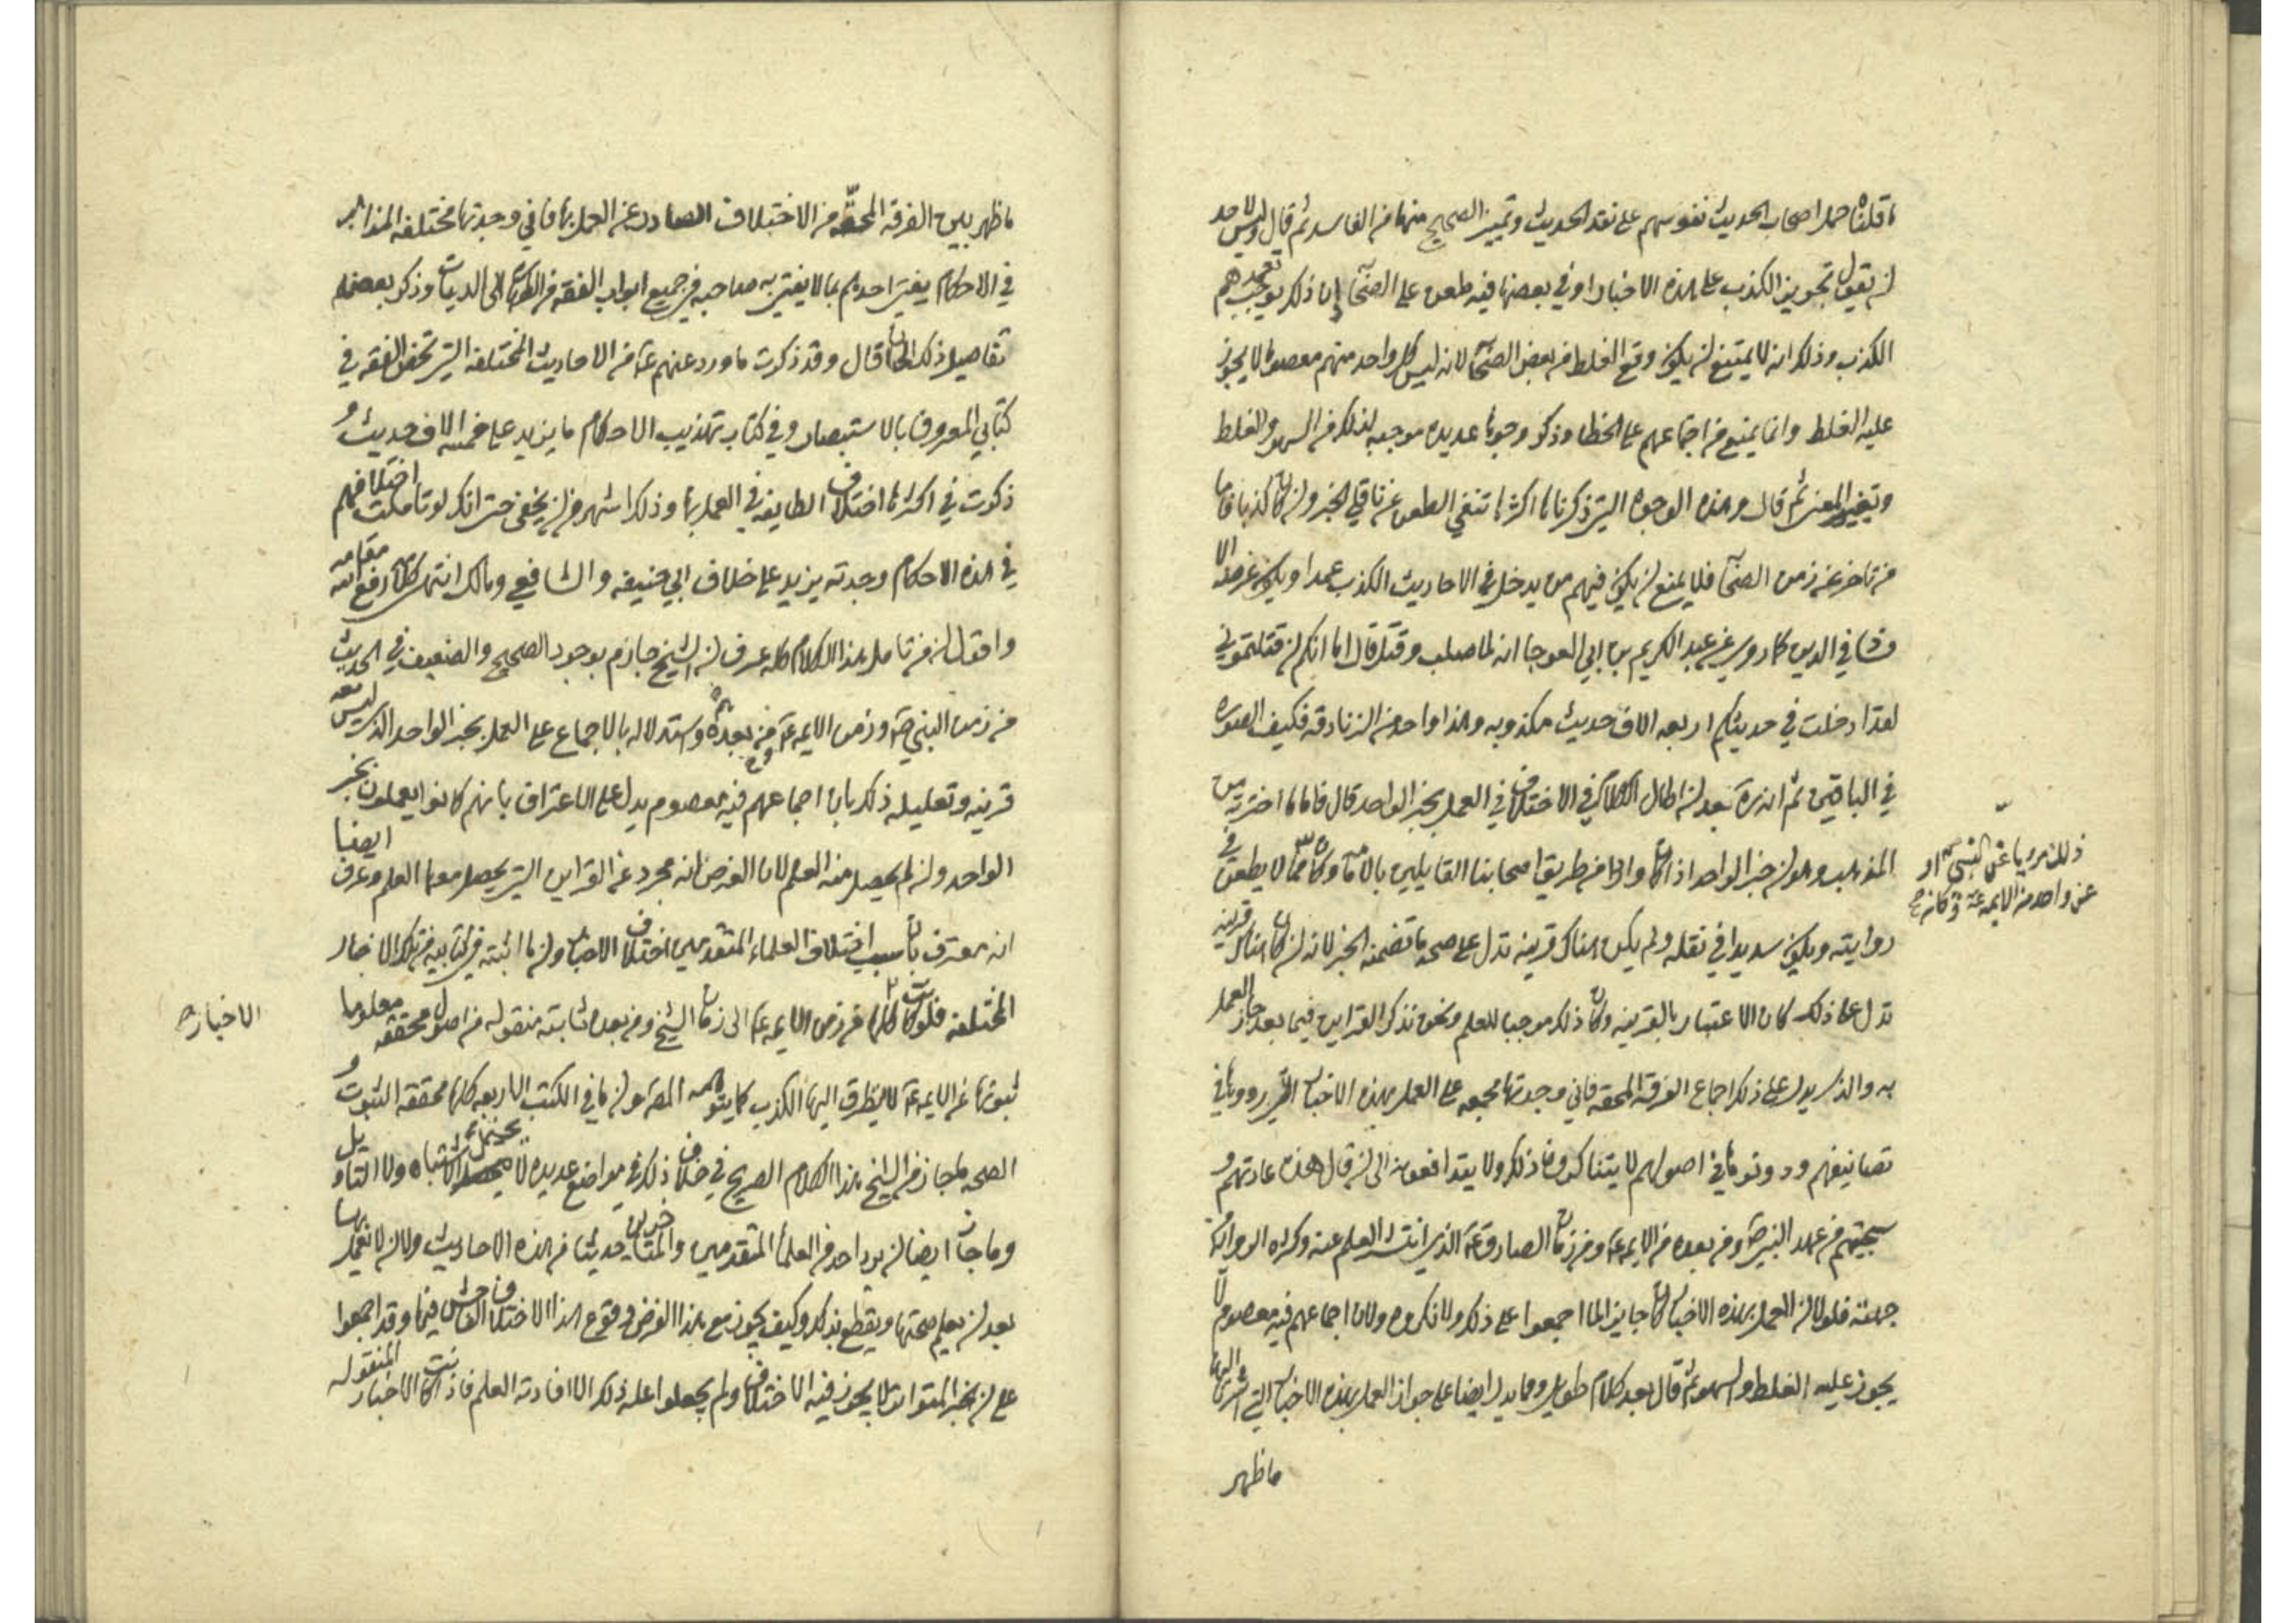 ما قلناه حمل اصحاب الحديث نفوسهم على نقد الحديث وتمييز الصحيح منها من الفاسد ثم قال وليس لاحد
ان يقول تجويز الكذب على هذه الاخبار او في بعضها فيه طعن على الصحابه لان ذلك يوجب تعمدهم
الكذب وذلك انه لا يمتنع ان يكون وقع الغلط من بعض الصحابه لانه ليس كل واحد منهم معصوما لا يجوز
عليه الغلط وانما يمنع من اجماعهم على الخطا وذكر وجوها عديده موجبه لذلك من السهو والغلط
وتغيير المعنى ثم قال وهذه الوجوه التي ذكرناها اكثرها تنفي الطعن عن ناقلي الخبر وان كان كذبا فاما
من تاخر عن زمن الصحابه فلا يمنع ان يكون فيهم من يدخل في الاحاديث الكذب عمدا ويكون غرضه الا
فساد في الدين كما روي عن عبد الكريم بن ابي العوجا انه لما صلب وقتل قال اما انكم ان قتلتموني
لقد ادخلت في حديثكم اربعه الاف حديث مكذوبه وهذا واحد من الزنادقه فكيف الصوره
في الباقين ثم انه ره بعد ان اطال الكلام في الاختلاف في العمل بخبر الواحد قال فاما ما اخترته من
المذهب وهو ان خبر الواحد اذا كان واردا من طريق اصحابنا القايلين بالامامه وكان ممن لا يطعن في
ذلك مرويا عن النبي ص او
عن واحد من الايمه ع وكان صح
روايته ويكون سديدا في نقله ولم يكن هناك قرينه تدل على صحه ما تضمنه الخبر لانه ان كان هناك قرينه
تدل على ذلك كان الاعتبار بالقرينه وكان ذلك موجبا للعلم ونحن نذكر القراين فيما بعد جاز العمل
به والذي يدل على ذلك اجماع الفرقه المحقه فاني وجدتها مجمعه على العمل بهذه الاخبار التي رووها في
تصانيفهم ودونوها في اصولهم لا يتناكرون ذلك ولا يتدافعون الى ان قال هذه عادتهم و
سجيتهم من عهد النبي ص ومن بعده من الايمه ع ومن زمان الصادق ع الذي انتشر العلم عنه وكثره الروايه من
جهته فلولا ان العمل بهذه الاخبار كان جايزا لما اجمعوا على ذلك ولانكروه ولان اجماعهم فيه معصوم لا
يجوز عليه الغلط والسهو ثم قال بعد كلام طويل ومما يدل ايضا على جواز العمل بهذه الاخبار التي اشرنا اليها
ما ظهر
ما ظهر بين الفرقه المحقه من الاختلاف الصادر عن العمل بها فاني وجدتها مختلفه المذاهب
في الاحكام يفتي احدهم بما لا يفتي به صاحبه في جميع ابواب الفقه من الطهاره الى الديات وذكر بعض
تفاصيل ذلك الى ان قال وقد ذكرت ما ورد عنهم ع من الاحاديث المختلفه التي تخص الفقه في
كتابي المعروف بالاستبصار وفي كتاب تهذيب الاحكام ما يزيد على خمسه الاف حديث و
ذكرت في اكثرها اختلاف الطايفه في العمل بها وذلك اشهر من ان يخفى حتى انك لو تاملت اختلافهم
في هذه الاحكام وجدته يزيد على خلاف ابي حنيفه والشافعي ومالك انتهى كلامه رفع الله مقامه
واقول ان من تامل هذا الكلام كله عرف ان الشيخ جازم بوجود الصحيح والضعيف في الحديث
من زمن النبي ص وزمن الايمه ع من بعده واستدلاله بالاجماع على العمل بخبر الواحد الذي ليس معه
قرينه وتعليله ذلك بان اجماعهم فيه معصوم يدل على الاعتراف بانهم كانوا يعملون بخبر
الواحد وان لم يحصل منه العلم لان الفرض انه مجرد عن القراين التي يحصل معها العلم وعرف ايضا
انه معترف بان سبب اختلاف العلماء المتقدمين اختلاف الاخبار وان ما اثبته في كتابيه من تلك الاخبار
المختلفه فلو كانت كلها من زمن الايمه ع الى زمان الشيخ ومن بعده ثابته منقوله من اصول محققه معلوما
الاخبار ه
ثبوتها عن الايمه ع لا يتطرق اليها الكذب كما يتوهمه المص وان ما في الكتب الاربعه كلها محققه الثبوت و
الصحه لما جاز من الشيخ هذا الكلام الصريح في خلاف ذلك في مواضع عديده لا يحتمل الاشتباه ولا التاويل
وما جاز ايضا ان يرد احد من العلماء المتقدمين والمتاخرين حديثا من هذه الاحاديث ولا ان لا يعمل بها
بعد ان يعلم صحتها ويقطع بذلك وكيف يجوز مع هذا الفرض وقوع هذا الاختلاف الفاحش فيها وقد اجمعوا
على ان الخبر المتواتر لا يجوز فيه الاختلاف ولم يجعلوا عله ذلك الا افادته العلم فاذا كانت الاخبار المنقوله